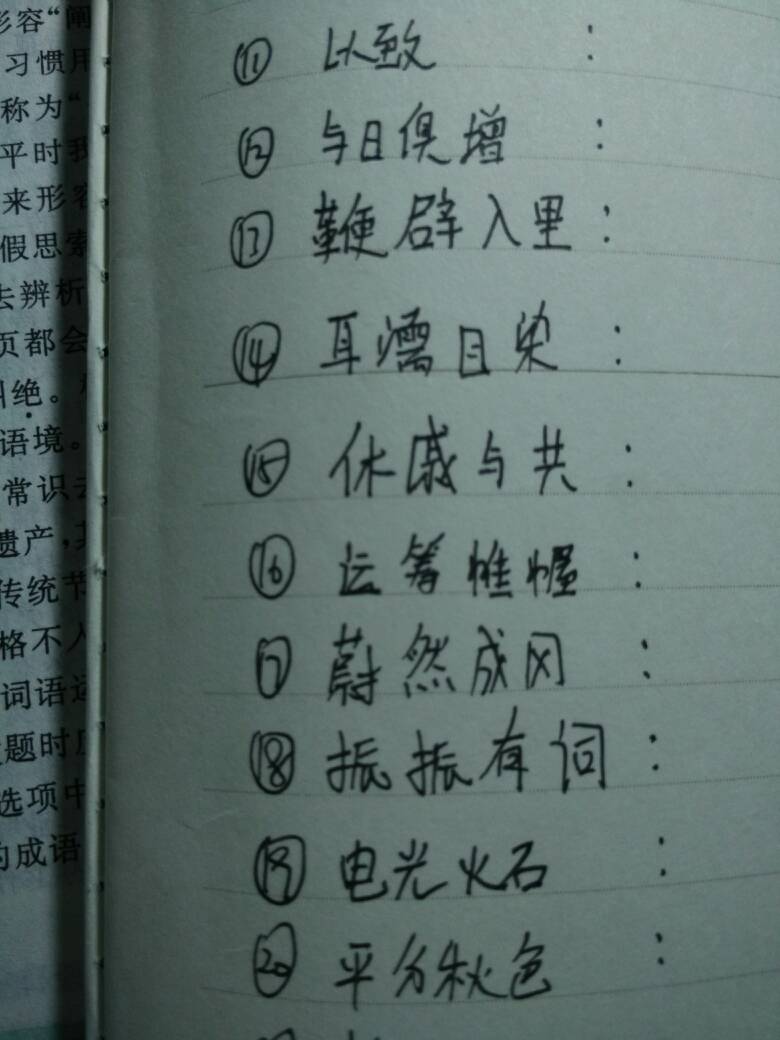 形容“阐
习惯用
称为“
平时我
来形容
假思索
去辨析
页都会
叫绝。
语境。
常识去
遗产，其
传统节
格不入
词语运
题时应
选项中
的成语
⑪ 以致 :
⑫ 与日俱增 :
⑬ 鞭辟入里 :
⑭ 耳濡目染 :
⑮ 休戚与共 :
⑯ 运筹帷幄 :
⑰ 蔚然成风 :
⑱ 振振有词 :
⑲ 电光火石 :
⑳ 平分秋色 :